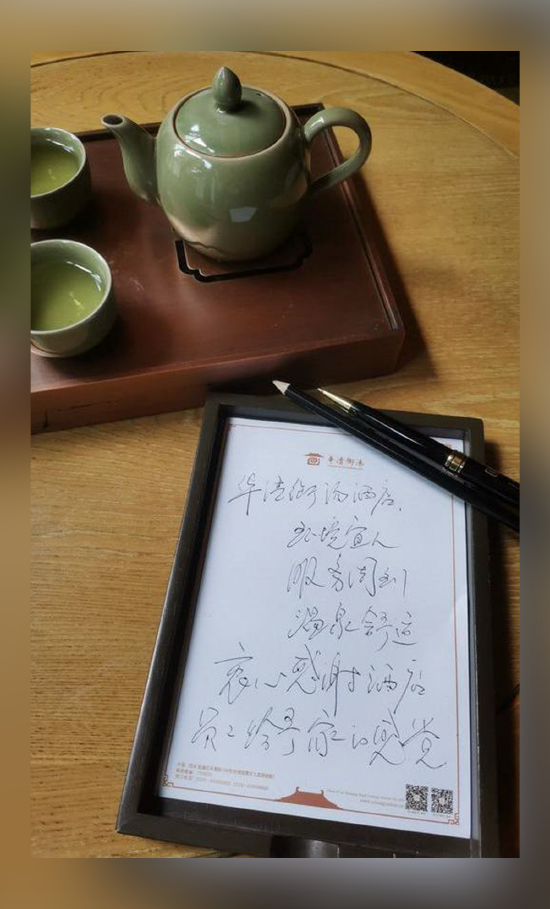 华清御汤
华清御汤酒店、
环境宜人
服务周到
温泉舒适
衷心感谢酒店
员工给予家的感觉